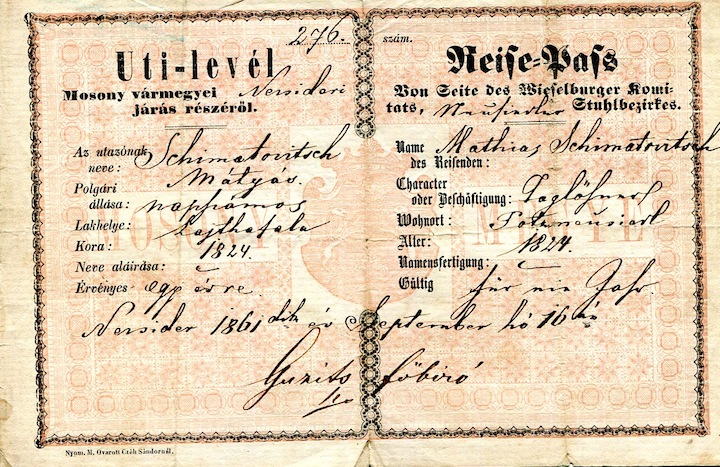 276. szám.
Uti-levél
Mosony vármegyei Nersideri
járás részéről.
Az utazónak
neve: Schimatovitsch
Mátyás
Polgári
állása: nappámos
Lakhelye: Lajthafala
Kora: 1824.
Neve aláirása: –
Érvényes egy évre.
Reise=Pass
Von Seite des Wieselburger Komi-
tats, Neusiedler Stuhlbezirkes.
Name Mathias Schimatovitsch
des Reisenden:
Character
oder Beschäftigung: Taglöhner
Wohnort: Potzneusiedl
Alter: 1824.
Namensfertigung: –
Gültig für ein Jahr.
Nersider 1861 dik év September hó 16 án
főbiró
MOSONY MEGYE
Nyom. M. Ovarott Czéh Sándornál.